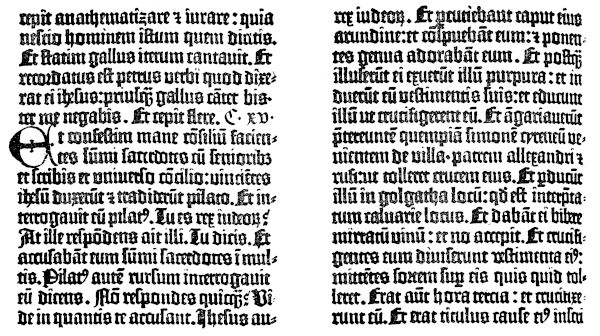 cepit anathematizare ⁊ iurare: quia
nescio hominem istum quem dicitis.
Et statim gallus iterum cantauit. Et
recordatus est petrus verbi quod dixe-
rat ei ihesus: priusq̃ gallus cãtet bis-
ter me negabis. Et cepit flere. C· xv·
Et confestim mane cõsiliũ facien-
tes sũmi sacerdotes cũ senioribꝫ
et scribis et vniuerso cõcilio: vinciẽtes
ihesũ duxerũt ⁊ tradiderũt pilato. Et in-
terrogauit eũ pilatꝰ. Tu es rex iudeoꝝ?
At ille respõdens ait illi. Tu dicis. Et
accusabãt eum sũmi sacerdotes ĩ mul-
tis. Pilatꝰ autẽ rursum interrogauit
eũ dicens. Nõ respondes quicq̃? Vi-
de in quantis te accusant. Ihesus au-
rex iudeoꝝ. Et ꝑcutiebant caput eius
arundine: et cõspuebãt eum: ⁊ ponen-
tes genua adorabãt eum. Et postq̃
illuserũt ei exuerũt illũ purpura: et in-
duerũt eũ vestimentis suis: et educunt
illũ vt crucifigerent eũ. Et ãgariauerũt
p̃tereuntẽ quempiã simonẽ cyreneũ ve-
nientem de villa · patrem alexandri ⁊
rufi: vt tolleret crucem eius. Et ꝑducũt
illũ in golgatha locũ: qđ est interp̃ta-
tum caluarie locus. Et dabãt ei bibere
mirratũ vinũ: et no accepit. Et crucifi-
gentes eum diuiserunt vestimenta eiꝰ:
mittẽtes sortem suꝑ eis quis quid tol-
leret. Erat aũt hora tercia: et crucifixe-
runt eũ. Et erat titulus cause eiꝰ insci